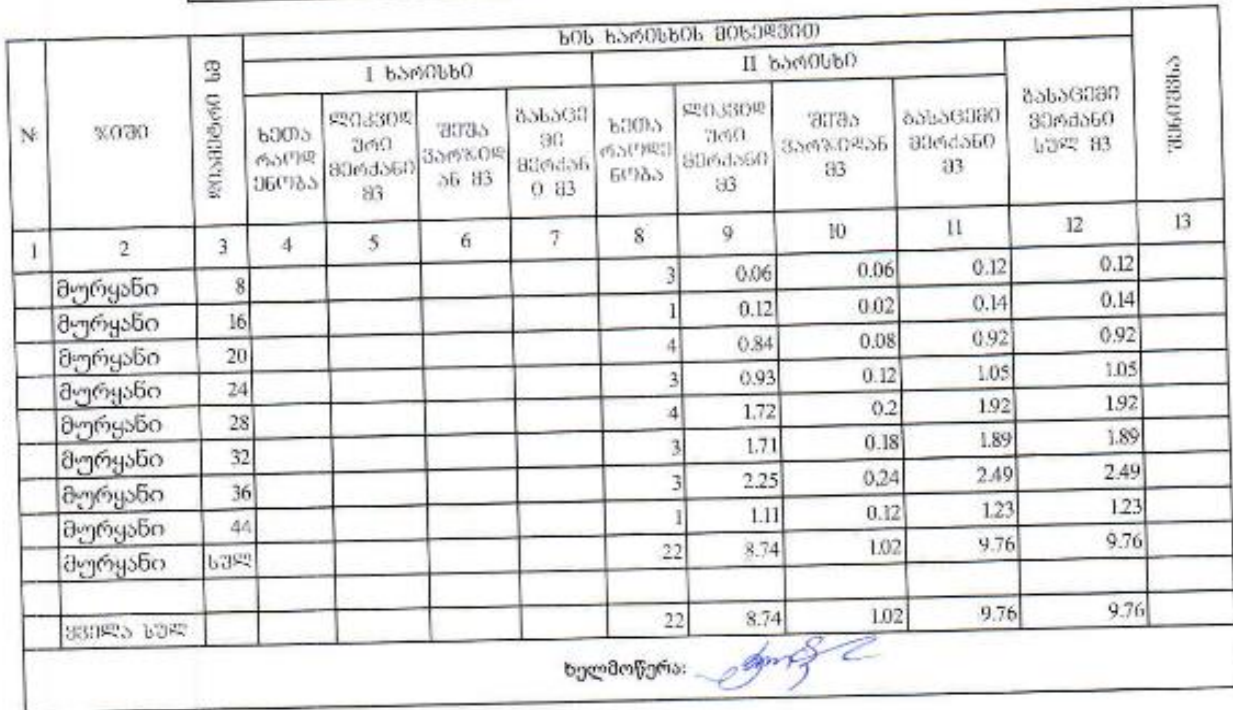 ხის ხარისხის მიხედვით
№ ჯიში დიამეტრი სმ I ხარისხი II ხარისხი გასაცემი მერქანი სულ მ3 შენიშვნა
ხეთა რაოდენობა ლიკვიდური მერქანი მ3 შეშა ვარჯიდან მ3 გასაცემი მერქანი მ3 ხეთა რაოდენობა ლიკვიდური მერქანი მ3 შეშა ვარჯიდან მ3 გასაცემი მერქანი მ3
1 2 3 4 5 6 7 8 9 10 11 12 13
მურყანი 8 3 0.06 0.06 0.12 0.12
მურყანი 16 1 0.12 0.02 0.14 0.14
მურყანი 20 4 0.84 0.08 0.92 0.92
მურყანი 24 3 0.93 0.12 1.05 1.05
მურყანი 28 4 1.72 0.2 1.92 1.92
მურყანი 32 3 1.71 0.18 1.89 1.89
მურყანი 36 3 2.25 0.24 2.49 2.49
მურყანი 44 1 1.11 0.12 1.23 1.23
მურყანი სულ 22 8.74 1.02 9.76 9.76
ყველა სულ 22 8.74 1.02 9.76 9.76
ხელმოწერა: